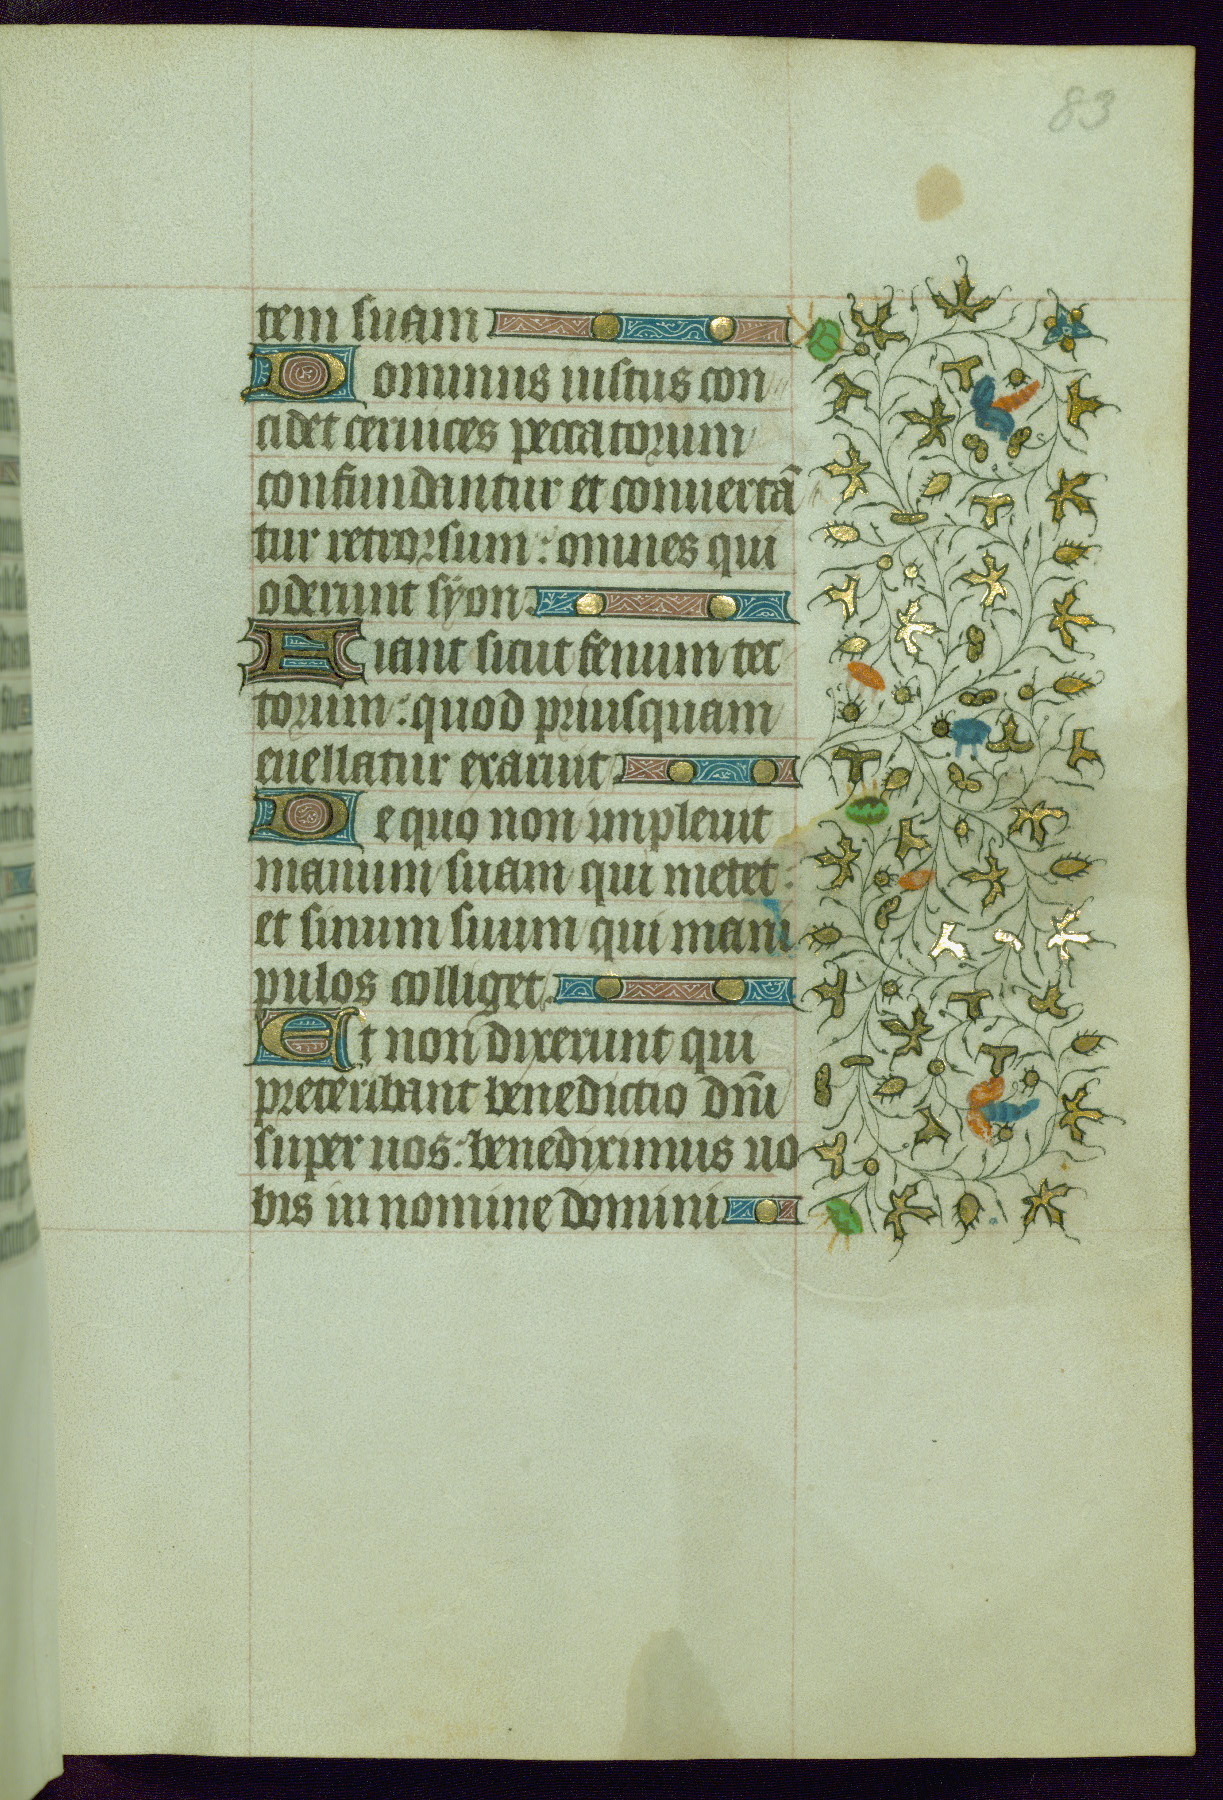 83
tem suam
Dominus iustus con
cidet ceruices peccatorum
confundantur et conuertā
tur retrorsum: omnes qui
oderunt sÿon.
Fiant sicut fenum tec
torum: quod priusquam
euellatur exaruit
De quo non impleuit
manum suam qui metet:
et sinum suum qui mani
pulos colliget.
Et non dixerunt qui
preteribant benedictio dn̄i
super uos: benediximus uo
bis in nomine domini